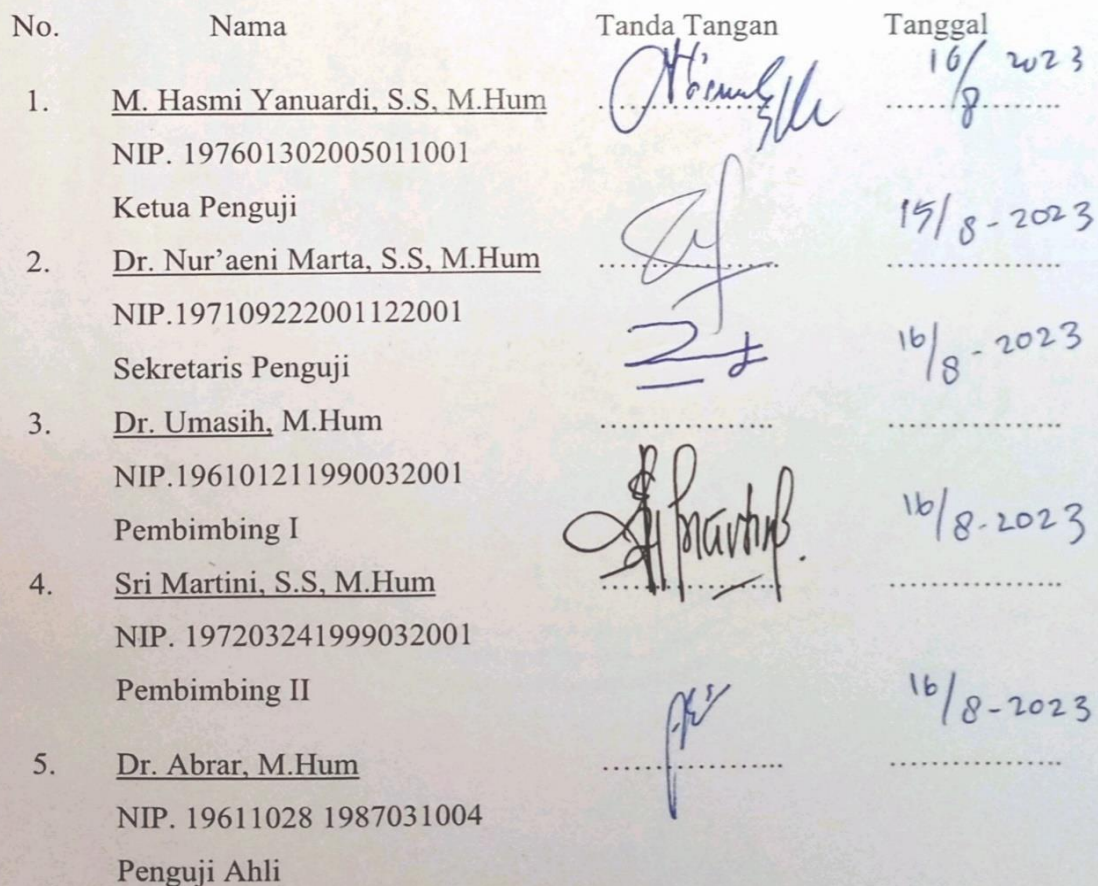 No. Nama Tanda Tangan Tanggal
16/8 2023
1. M. Hasmi Yanuardi, S.S, M.Hum .................. ..................
NIP. 197601302005011001
Ketua Penguji
15/8-2023
2. Dr. Nur’aeni Marta, S.S, M.Hum .................. ..................
NIP.197109222001122001
Sekretaris Penguji
16/8-2023
3. Dr. Umasih, M.Hum .................. ..................
NIP.196101211990032001
Pembimbing I
16/8-2023
4. Sri Martini, S.S, M.Hum .................. ..................
NIP. 197203241999032001
Pembimbing II
16/8-2023
5. Dr. Abrar, M.Hum .................. ..................
NIP. 19611028 1987031004
Penguji Ahli